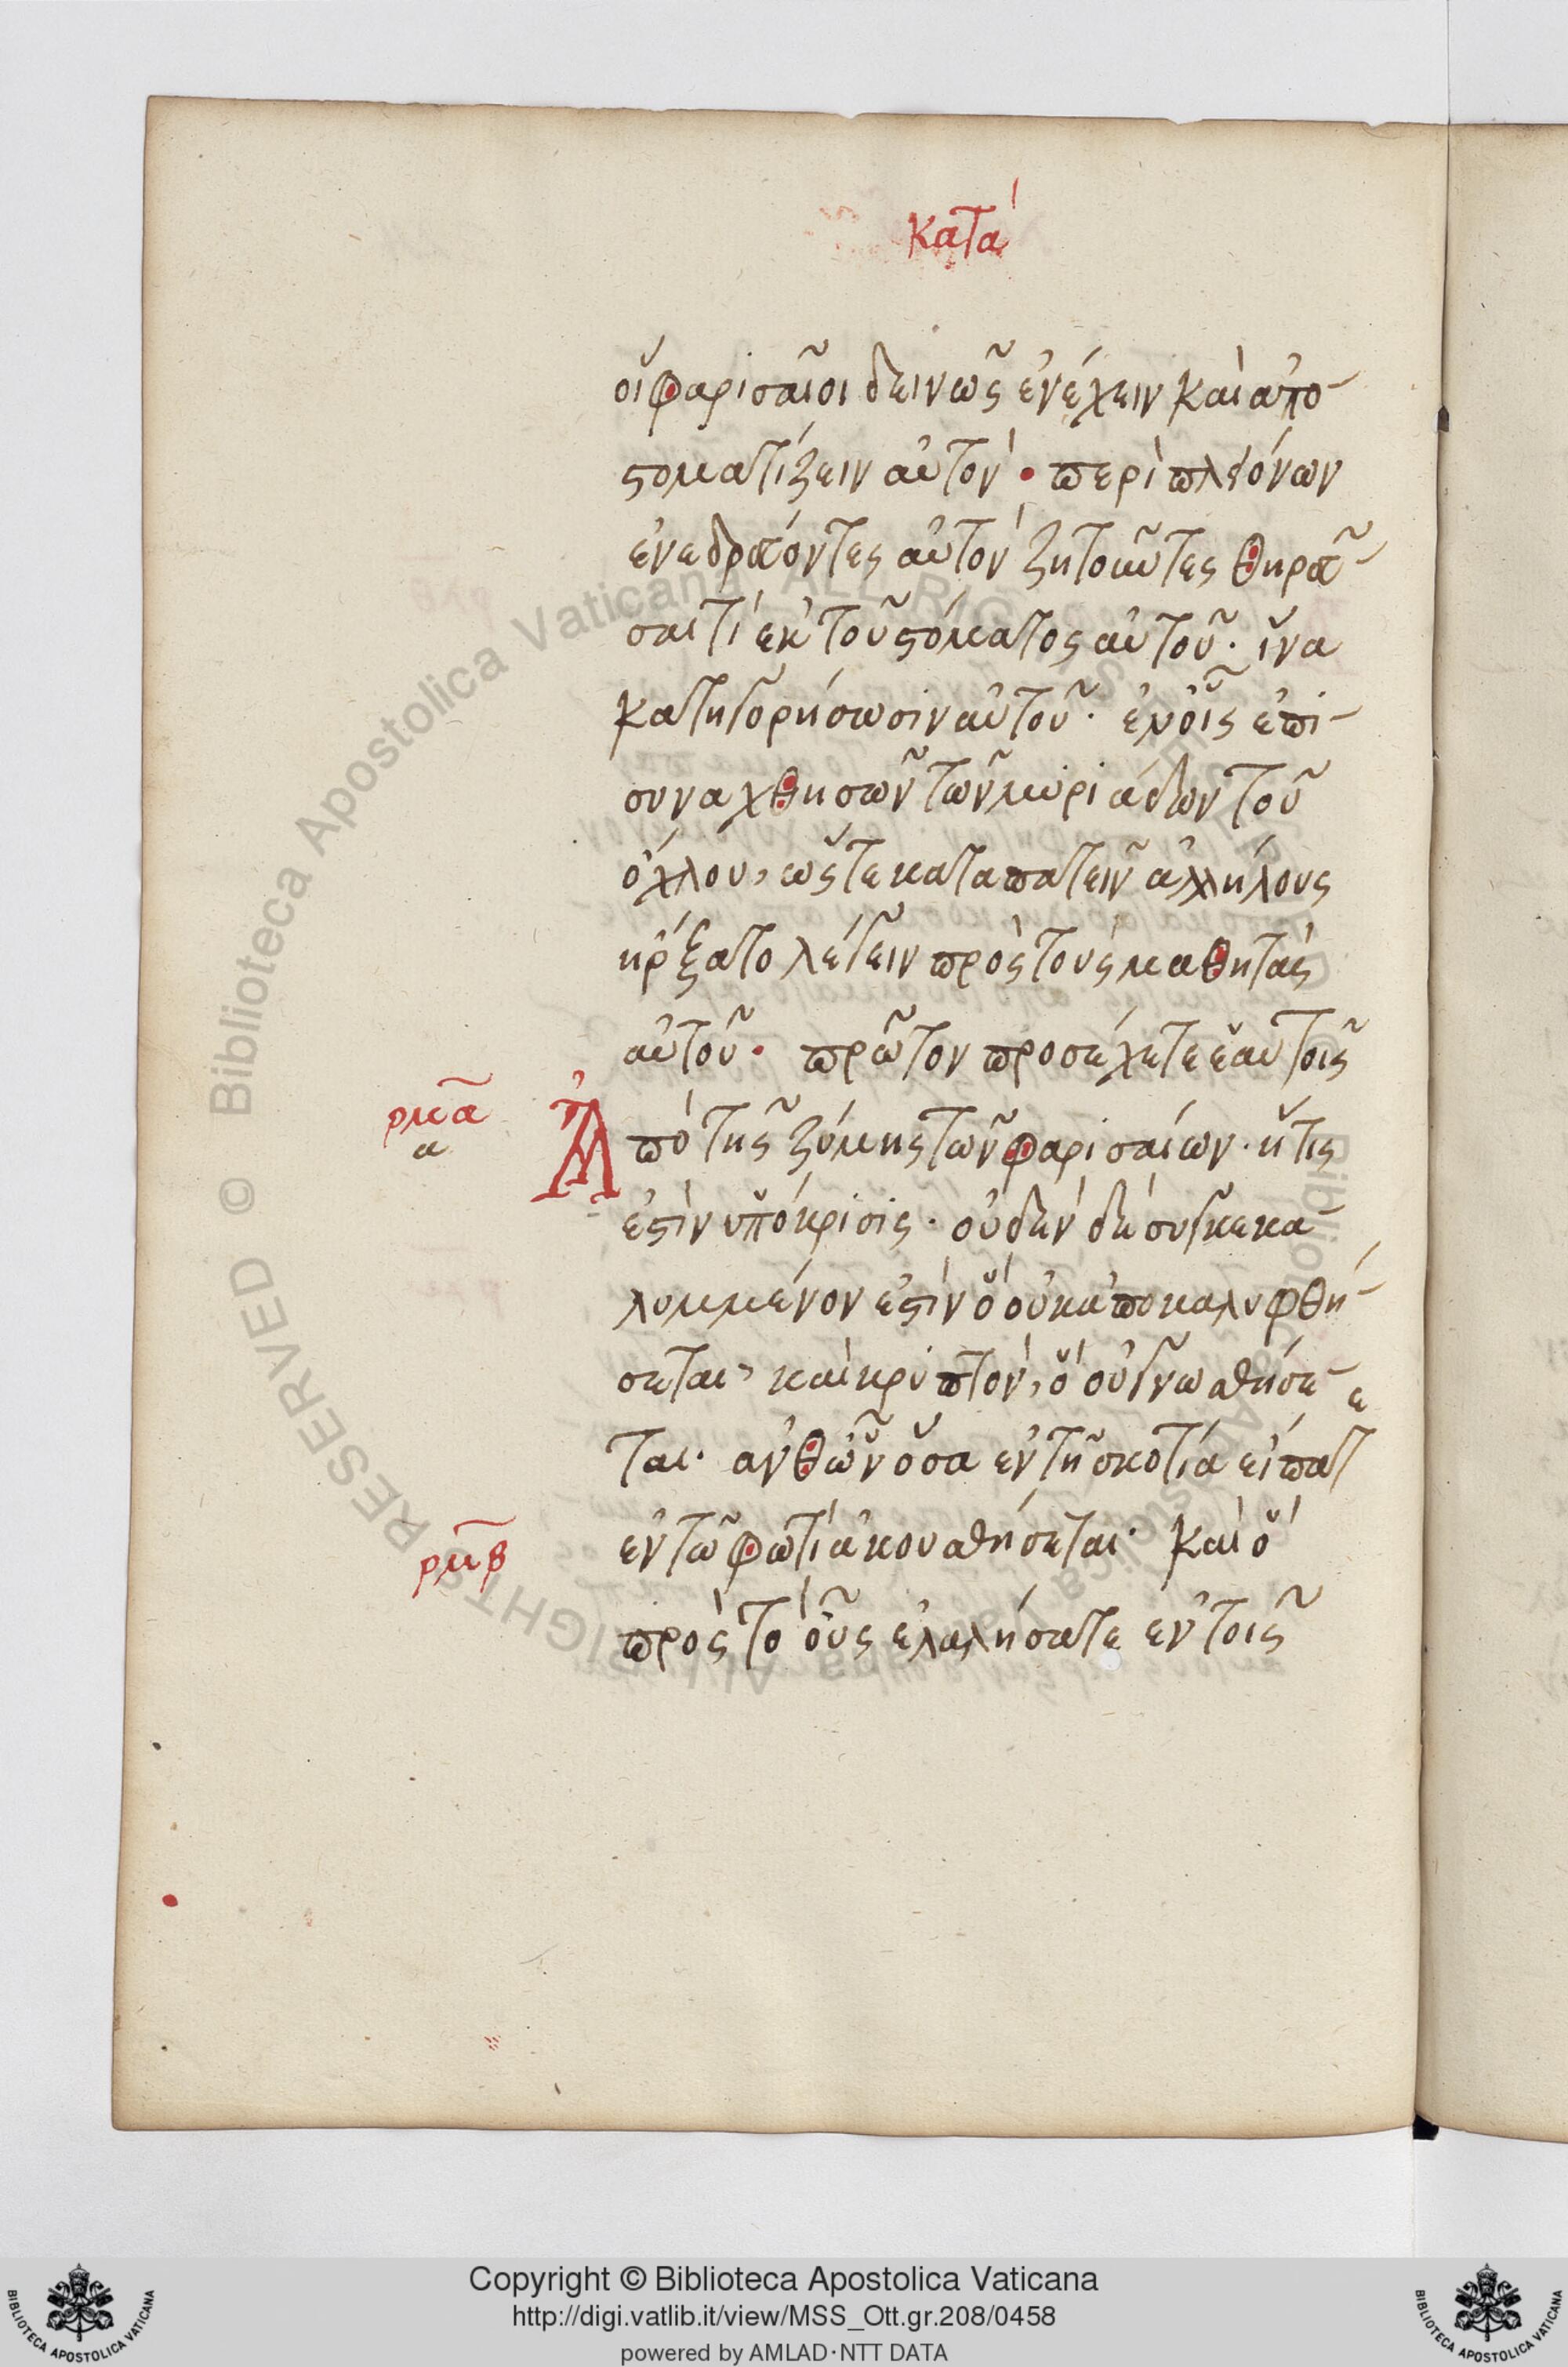 κατὰ
οἱ φαρισαῖοι δεινῶς ἐνέχειν καὶ ἀπο-
στοματίζειν αὐτὸν · περὶ πλειόνων
ἐνεδρεύοντες αὐτὸν ζητοῦντες θηρεῦ-
σαί τι ἐκ τοῦ στόματος αὐτοῦ · ἵνα
κατηγορήσωσιν αὐτοῦ · ἐν οἷς ἐπι-
συναχθησῶν τῶν μυριάδων τοῦ
ὄχλου, ὥστε καταπατεῖν ἀλλήλους
ἤρξατο λέγειν πρὸς τοὺς μαθητὰς
αὐτοῦ · πρῶτον προσέχετε ἑαυτοῖς
ρμα
α
Ἀπὸ τῆς ζύμης τῶν φαρισαίων · ἥτις
ἐστὶν ὑπόκρισις · οὐδὲν δὲ συγκεκα-
λυμμένον ἐστὶν ὃ οὐκ ἀποκαλυφθή-
σεται, καὶ κρυπτὸν, ὃ οὐ γνωσθήσε-
ται · ἀνθ' ὧν ὅσα ἐν τῇ σκοτία εἴπατε
ρμβ
ἐν τῶ φωτὶ ἀκουσθήσεται · καὶ ὃ
πρὸς τὸ οὖς ἐλαλήσατε ἐν τοῖς
© Biblioteca Apostolica Vaticana ALL RIGHTS RESERVED
Copyright © Biblioteca Apostolica Vaticana
http://digi.vatlib.it/view/MSS_Ott.gr.208/0458
powered by AMLAD·NTT DATA
BIBLIOTECA APOSTOLICA VATICANA
BIBLIOTECA APOSTOLICA VATICANA